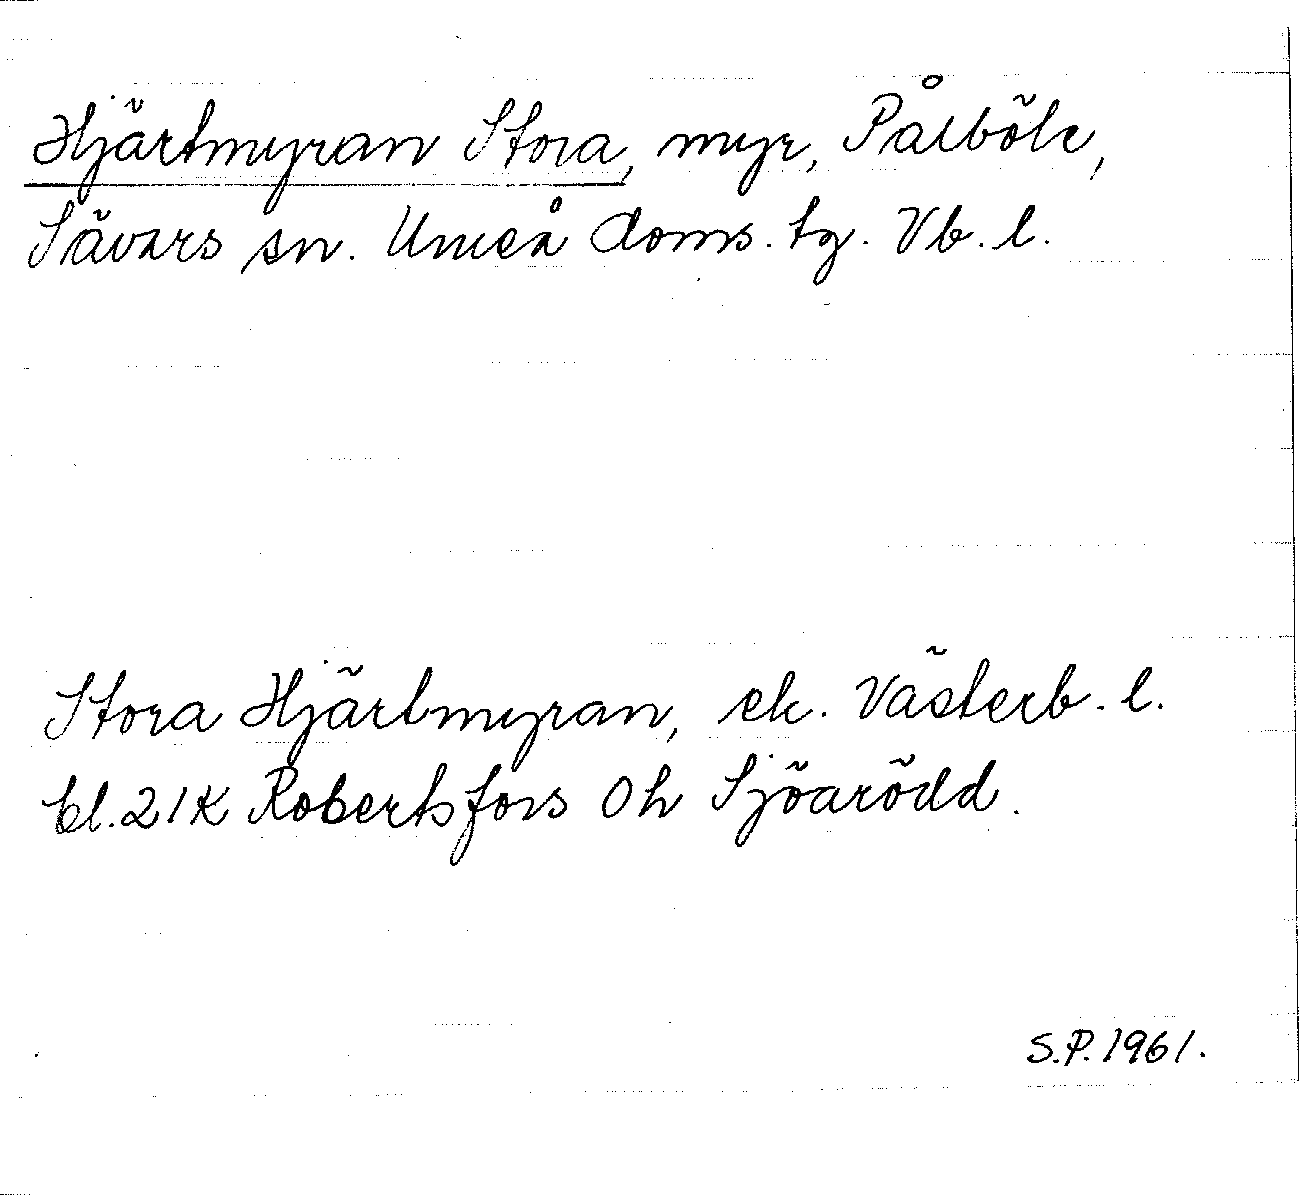 Hjärtmyran Stora, myr, Pålböle,
Sävars sn. Umeå doms. tg. Vb. l.
Stora Hjärtmyran, ek. Västerb. l.
bl. 21K Robertsfors Oh Sjöarödd.
S.P. 1961.